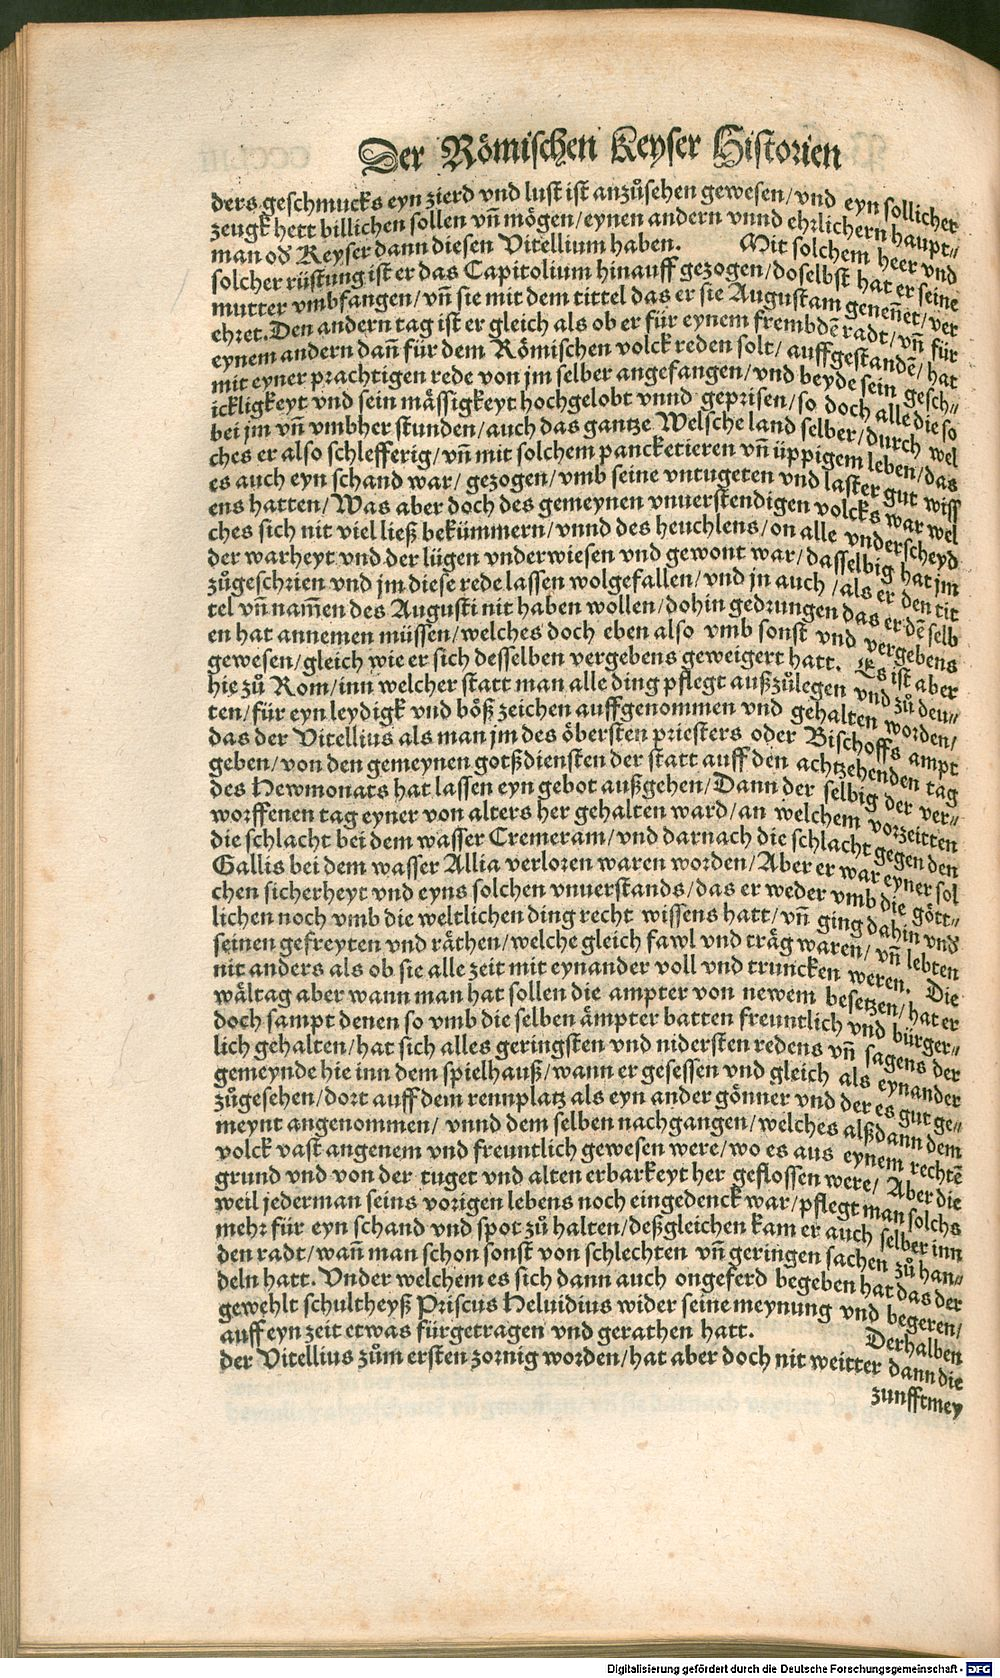 Der Römischen Keyser Historien
ders geschmucks eyn zierd vnd lust ist anzůsehen gewesen/vnd eyn sollicher
zeugk hett billichen sollen vñ mögen/eynen andern vnnd ehrlichern haupt⸗
man od̃ Keyser dann diesen Vitellium haben. Mit solchem heer vnd
solcher rüstung ist er das Capitolium hinauff gezogen/doselbst hat er seine
mutter vmbfangen/vñ sie mit dem tittel das er sie Augustam geneñet/ver
ehret. Den andern tag ist er gleich als ob er für eynem frembdẽ radt/vñ für
eynem andern dañ für dem Römischen volck reden solt/auffgestandẽ/hat
mit eyner prachtigen rede von jm selber angefangen/vnd beyde sein gesch⸗
ickligkeyt vnd sein mässigkeyt hochgelobt vnnd geprisen/so doch alle die so
bei jm vñ vmbher stunden/auch das gantze Welsche land selber/durch wel
ches er also schlefferig/vñ mit solchem pancketieren vñ üppigem leben/das
es auch eyn schand war/gezogen/vmb seine vntugeten vnd laster gut wiss
ens hatten/Was aber doch des gemeynen vnuerstendigen volcks war wel
ches sich nit viel ließ bekümmern/vnnd des heuchlens/on alle vnderscheyd
der warheyt vnd der lügen vnderwiesen vnd gewont war/dasselbig hat jm
zůgeschrien vnd jm diese rede lassen wolgefallen/vnd jn auch/als er den tit
tel vñ nam̃en des Augusti nit haben wollen/dohin gedrungen das er dẽ selb
en hat annemen müssen/welches doch eben also vmb sonst vnd vergebens
gewesen/gleich wie er sich desselben vergebens geweigert hatt. Es ist aber
hie zů Rom/inn welcher statt man alle ding pflegt außzůlegen vnd zů deu⸗
ten/für eyn leydigk vnd böß zeichen auffgenommen vnd gehalten worden/
das der Vitellius als man jm des öbersten priesters oder Bischoffs ampt
geben/von den gemeynen gotßdiensten der statt auff den achtzehenden tag
des Hewmonats hat lassen eyn gebot außgehen/Dann der selbig der ver⸗
worffenen tag eyner von alters her gehalten ward/an welchem vorzeitten
die schlacht bei dem wasser Cremeram/vnd darnach die schlacht gegen den
Gallis bei dem wasser Allia verloren waren worden/Aber er war eyner sol
chen sicherheyt vnd eyns solchen vnuerstands/das er weder vmb die gött⸗
lichen noch vmb die weltlichen ding recht wissens hatt/vñ ging dahin vnd
seinen gefreyten vnd räthen/welche gleich fawl vnd träg waren/vñ lebten
nit anders als ob sie alle zeit mit eynander voll vnd truncken weren. Die
wältag aber wann man hat sollen die ampter von newem besetzen/hat er
doch sampt denen so vmb die selben ämpter batten freuntlich vnd bürger⸗
lich gehalten/hat sich alles geringsten vnd nidersten redens vñ sagens der
gemeynde hie inn dem spielhauß/wann er gesessen vnd gleich als eynander
zůgesehen/dort auff dem rennplatz als eyn ander gönner vnd der es gut ge⸗
meynt angenommen/vnnd dem selben nachgangen/welches alßdann dem
volck vast angenem vnd freuntlich gewesen were/wo es aus eynem rechtẽ
grund vnd von der tuget vnd alten erbarkeyt her geflossen were/Aber die
weil jederman seins vorigen lebens noch eingedenck war/pflegt man solchs
mehr für eyn schand vnd spot zů halten/deßgleichen kam er auch selber inn
den radt/wañ man schon sonst von schlechten vñ geringen sachen zů han⸗
deln hatt. Vnder welchem es sich dann auch ongeferd begeben hat das der
gewehlt schultheyß Priscus Heluidius wider seine meynung vnd begeren/
auff eyn zeit etwas fürgetragen vnd gerathen hatt. Derhalben
der Vitellius zům ersten zornig worden/hat aber doch nit weitter dann die
zunfftmey
Digitalisierung gefördert durch die Deutsche Forschungsgemeinschaft - DFG